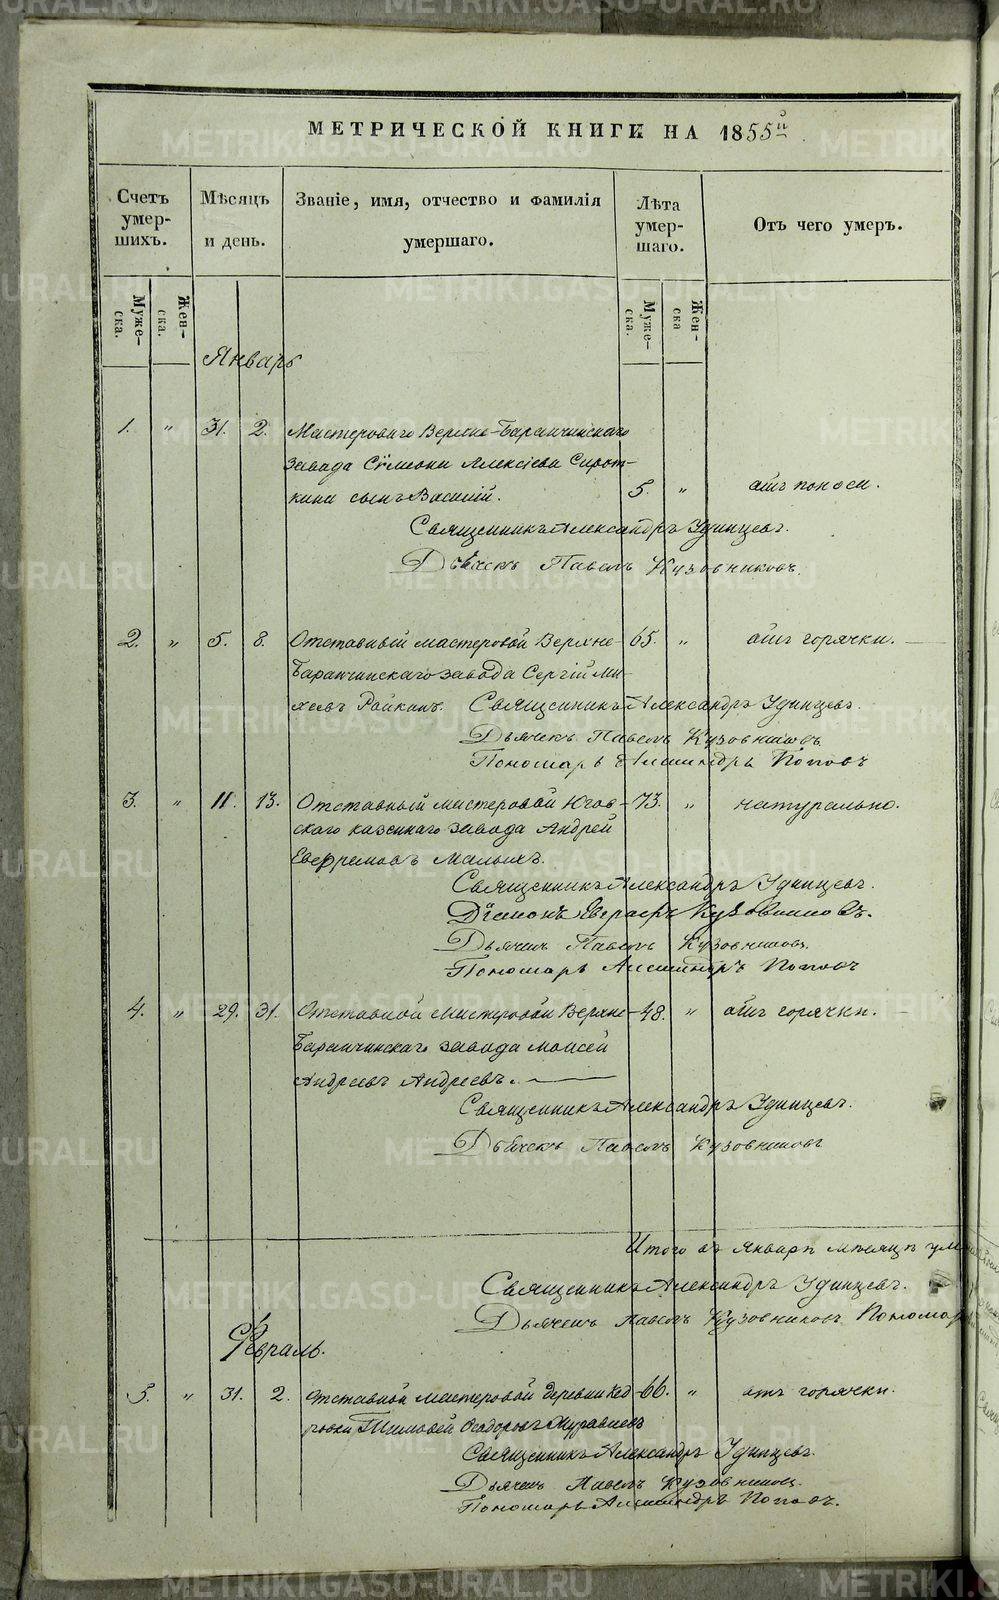 МЕТРИЧЕСКОЙ КНИГИ НА 1855й
Счетъ умер- шихъ.
Мѣсяцъ и день.
Званіе, имя, отчество и фамилія умершаго.
Лѣта умер- шаго.
Отъ чего умеръ.
Муже- ска.
Жен- ска.
Муже- ска.
Жен- ска
Январь
1. " 31. 2. Мастероваго Верхне-Баранчинскаго
завода Сѵмеона Алексіева Сирот-
кина сынъ Василій. 5. " отъ поноса.
Священникъ Александръ Удинцевъ.
Дьячекъ Павелъ Кузовниковъ.
2. " 5. 8. Отставный мастеровой Верхне- 65. " отъ горячки.
Баранчинскаго завода Сергій Ми-
хеевъ Райкинъ. Священникъ Александръ Удинцевъ.
Дьячекъ Павелъ Кузовниковъ
Пономарь Александръ Поповъ
3. " 11. 13. Отставный мастеровой Югов- 73. " натурально.
скаго казеннаго завода Андрей
Евфремовъ Малыхъ.
Священникъ Александръ Удинцевъ.
Діаконъ Кузовниковъ.
Дьячекъ Павелъ Кузовниковъ.
Пономарь Александръ Поповъ
4. " 29. 31. Отставной Мастеровой Верхне- 48. " отъ горячки.
Баранчинскаго завода Моисей
Андреевъ Андреевъ.
Священникъ Александръ Удинцевъ.
Дьячекъ Павелъ Кузовниковъ
Итого въ Январѣ мѣсяцѣ
Священникъ Александръ Удинцевъ.
Дьячекъ Павелъ Кузовниковъ Пономарь
Февраль.
5. " 31. 2. Отставной мастеровой деревни Кед- 66. " отъ горячки.
ровки Тимофей Ѳеодоровъ Журавлевъ
Священникъ Александръ Удинцевъ.
Дьячекъ Павелъ Кузовниковъ.
Пономарь Александръ Поповъ.
METRIKI.GASO-URAL.RU